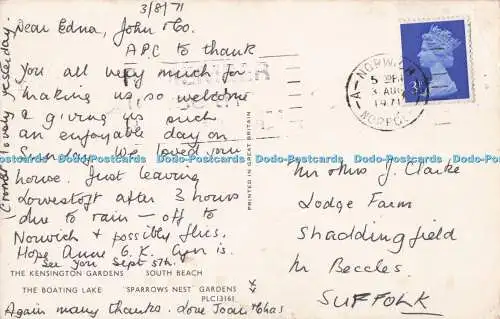 3/8/71
Dear Edna, John & Co.
A P.C to thank
you all very much for
making us, so welcome
& giving us such
an enjoyable day on
Sunday. We loved your
house. Just leaving
Lowestoft after 3 hours
due to rain - off to
Norwich & possibly flics.
Hope Anne O.K. Lyn is.
See you Sept 5th.
THE KENSINGTON GARDENS SOUTH BEACH
THE BOATING LAKE "SPARROWS NEST" GARDENS
PLC13161
Again many thanks. Love Joan & Chas
lovely yesterday.
PRINTED IN GREAT BRITAIN
NORWICH
5 PM
3 AUG
1971
A
NORFOLK
3P
Mr & Mrs J. Clarke
Lodge Farm
Shaddingfield
Nr Beccles.
SUFFOLK
Dodo-Postcards Dodo-Postcards Dodo-Postcards Dodo-Postcards Dodo-Postcards Dodo-Postcards